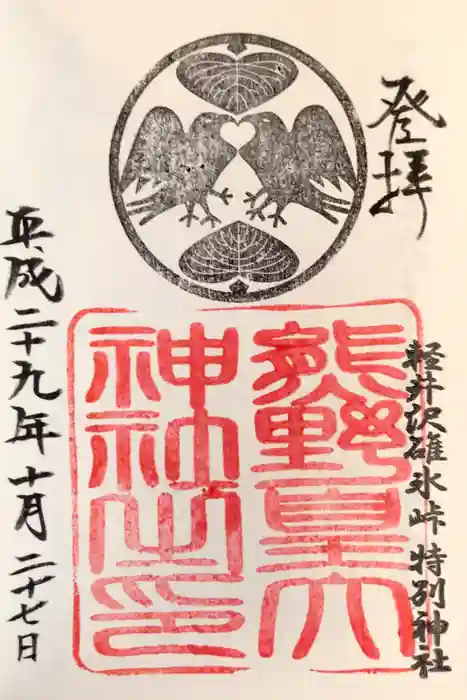 登拝
軽井沢碓氷峠特別神社
熊野皇大
神社之印
平成二十九年十月二十七日